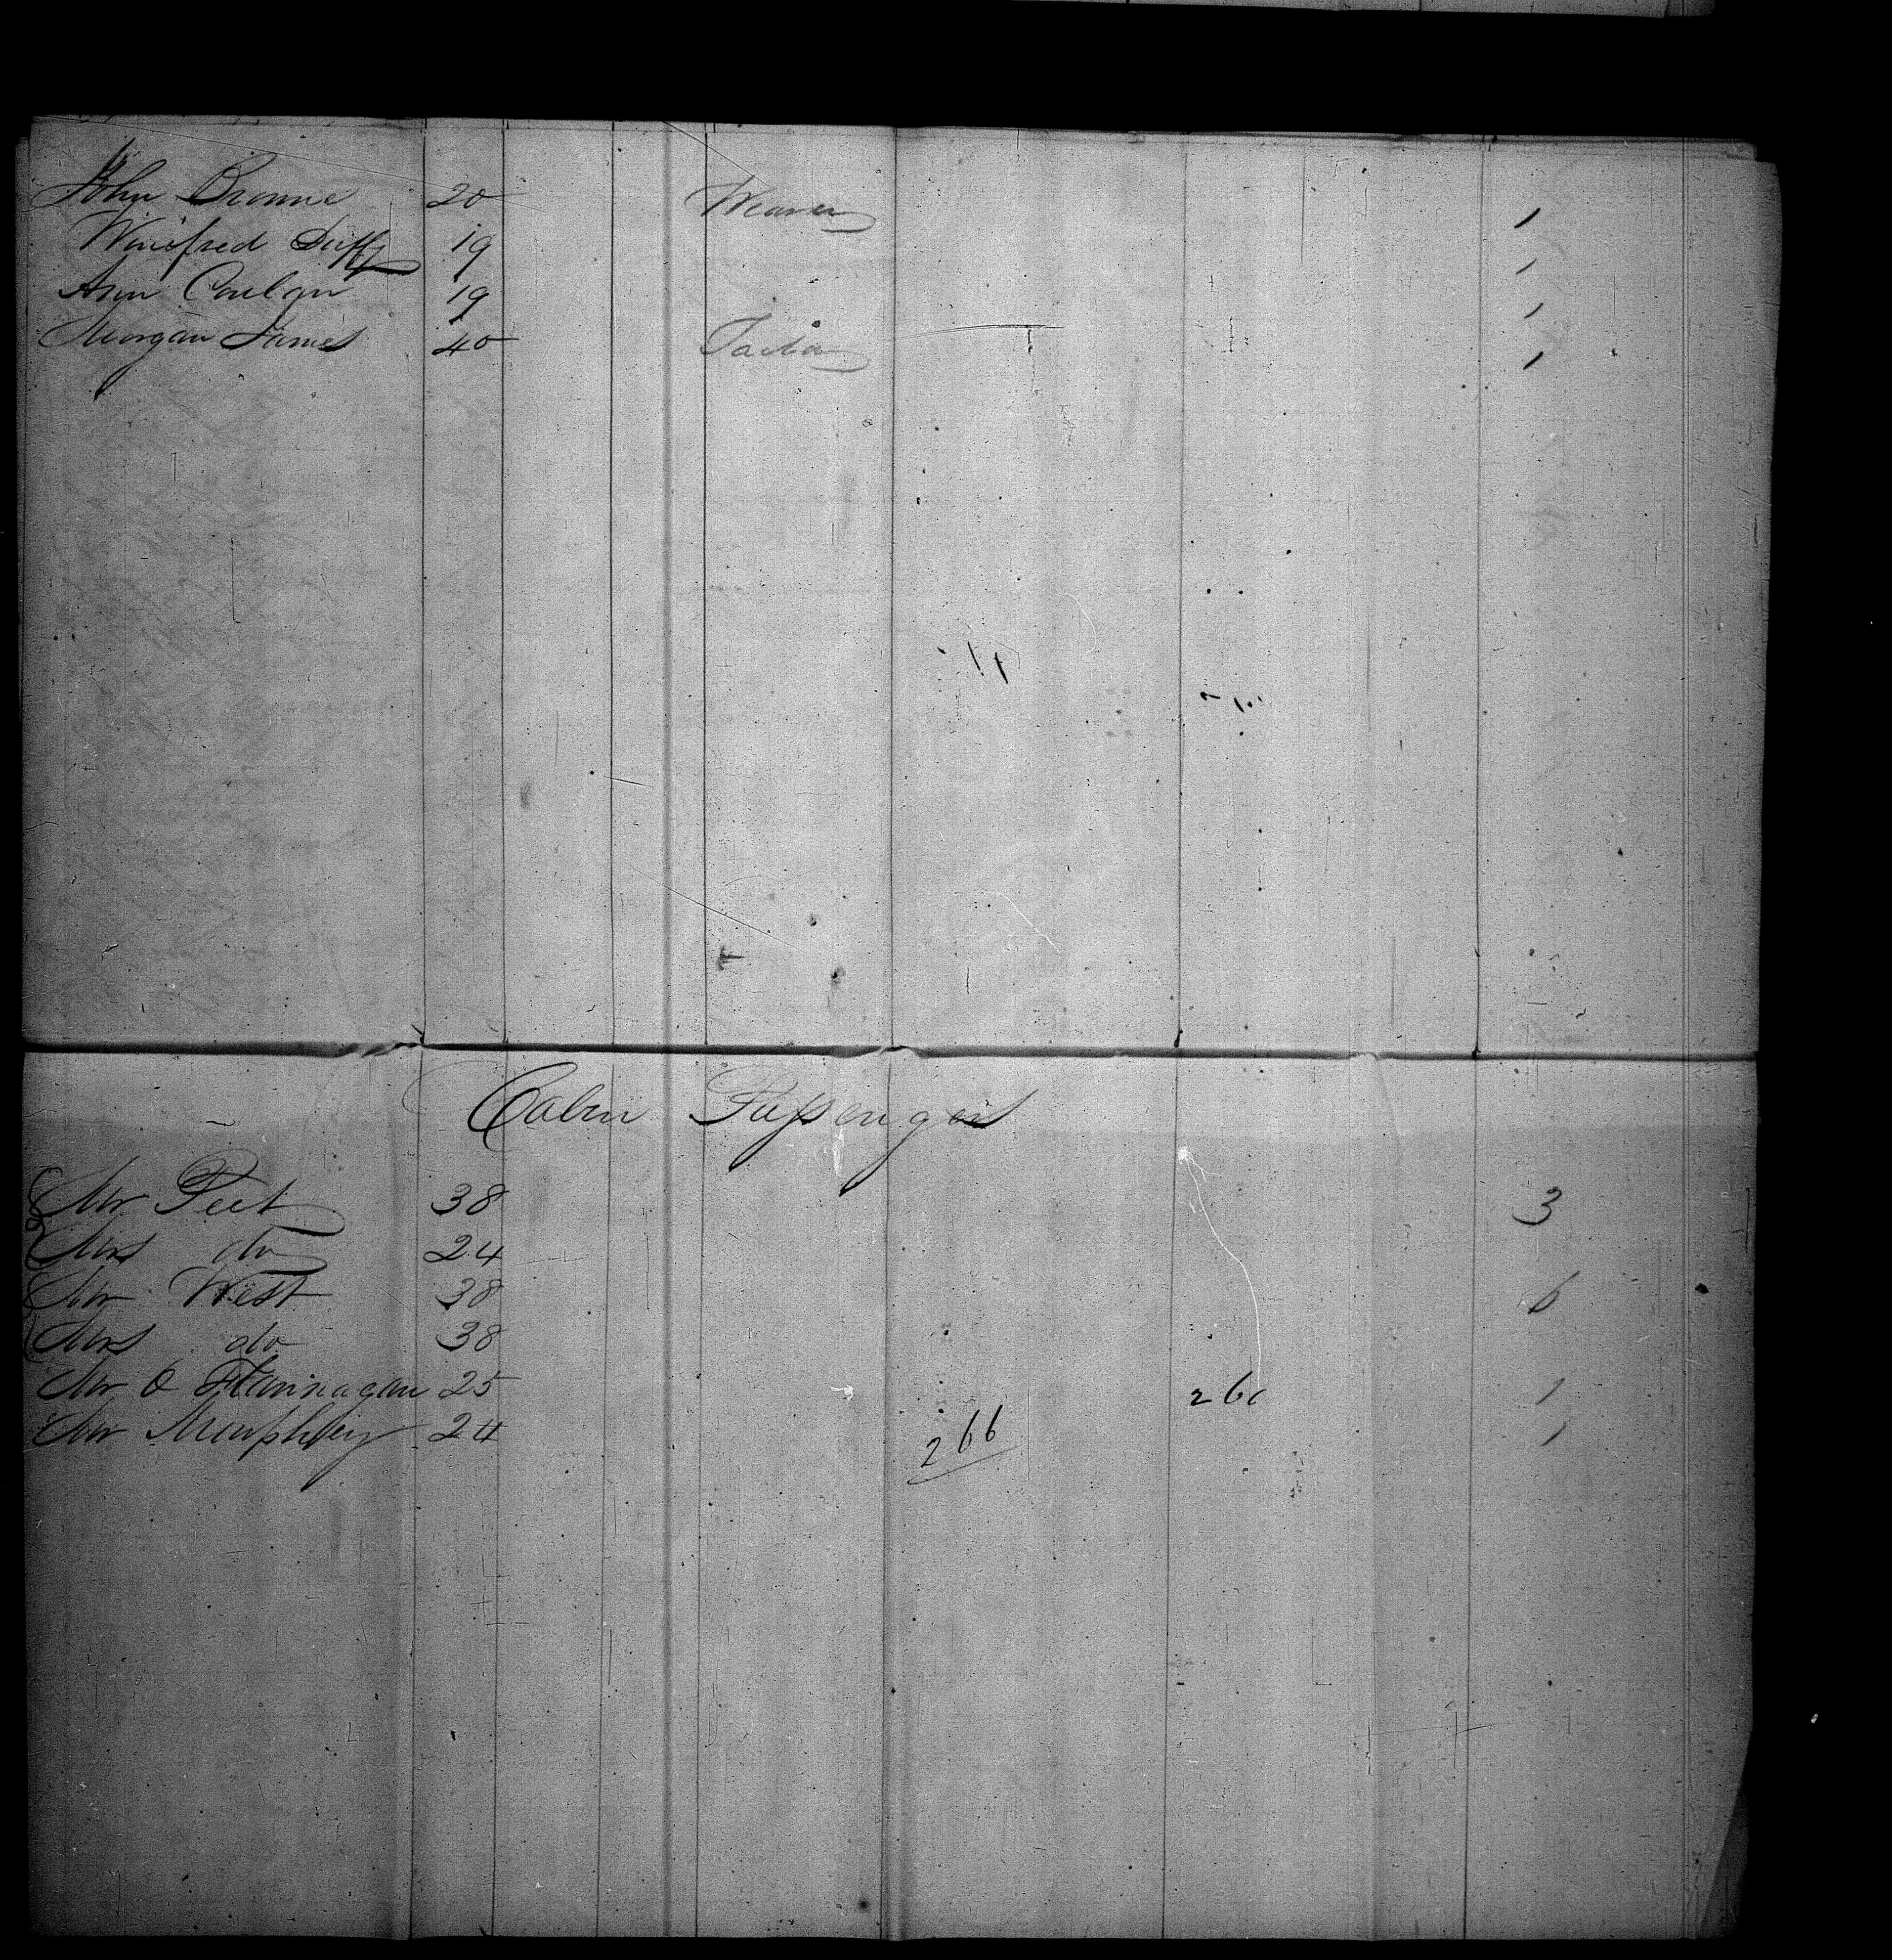 John Browne 20 Weaver 1
Winifred Duffy 19 1
Ann Conlan 19 1
Morgan James 40 1
Cabin Passengers
Mr Peet 38 3
Mrs do 24
Mr West 38 6
Mrs do 38
Mr O Flannagan 25 266 1
Mr Murphy 24 266 1